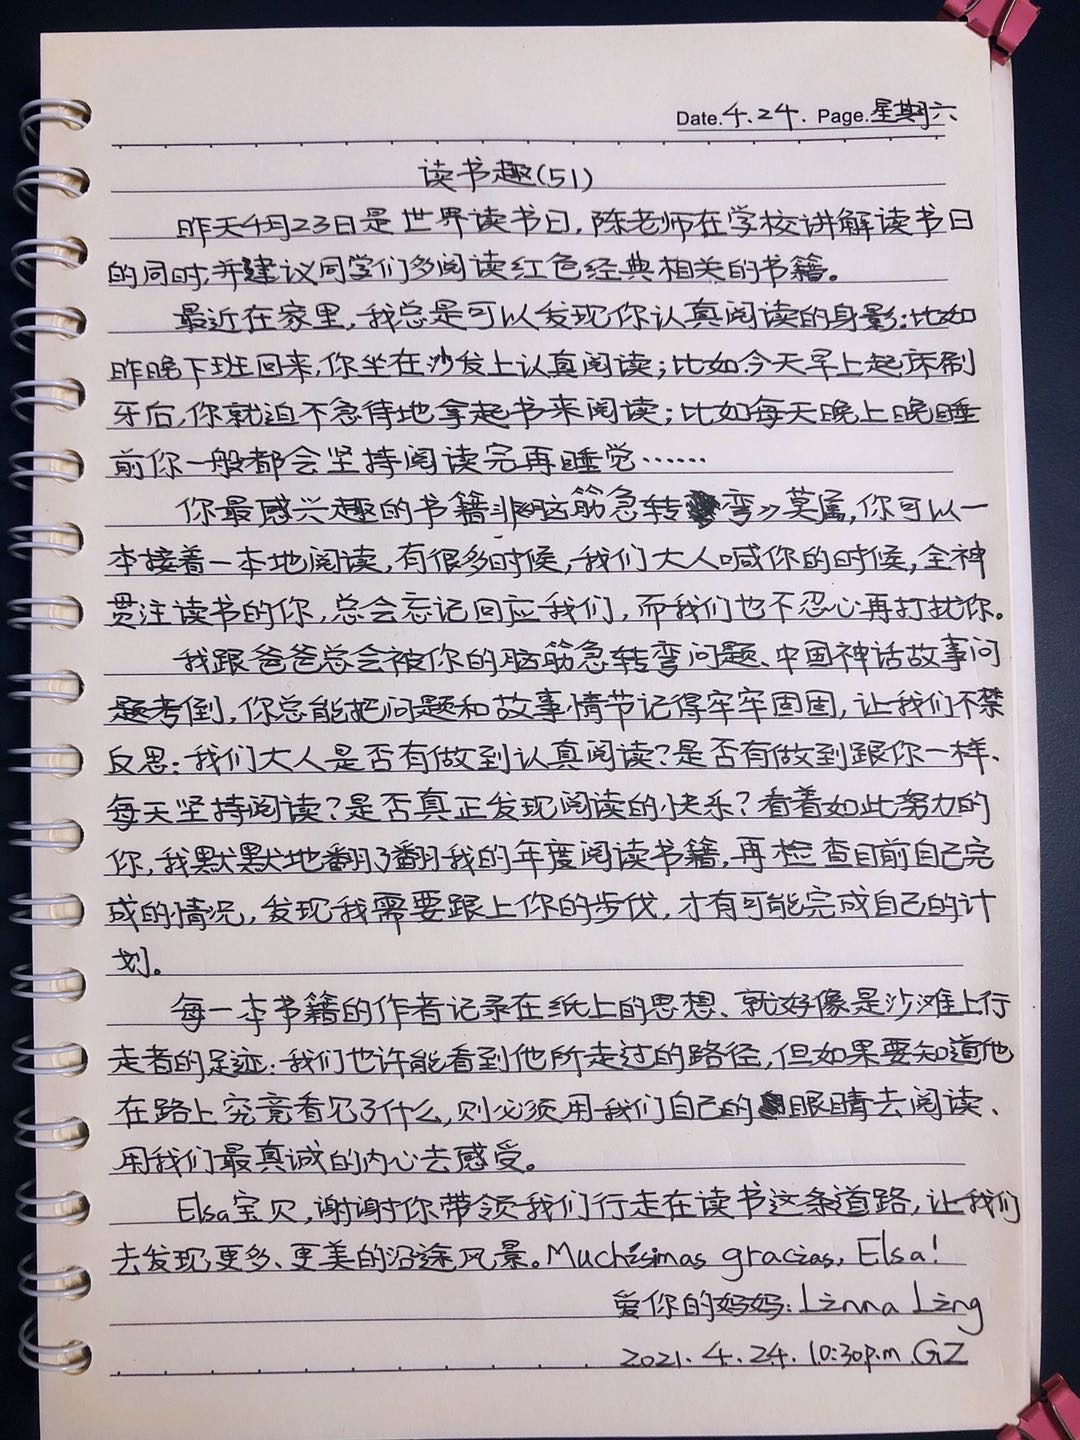 Date.4.24. Page.星期六
读书趣(51)
昨天4月23日是世界读书日,陈老师在学校讲解读书日
的同时,并建议同学们多阅读红色经典相关的书籍。
最近在家里,我总是可以发现你认真阅读的身影:比如
昨晚下班回来,你坐在沙发上认真阅读;比如今天早上起床刷
牙后,你就迫不急待地拿起书来阅读;比如每天晚上晚睡
前你一般都会坚持阅读完再睡觉……
你最感兴趣的书籍非脑筋急转弯》莫属,你可以一
本接着一本地阅读,有很多时候,我们大人喊你的时候,全神
贯注读书的你,总会忘记回应我们,而我们也不忍心再打扰你。
我跟爸爸总会被你的脑筋急转弯问题、中国神话故事问
题考倒,你总能把问题和故事情节记得牢牢固固,让我们不禁
反思:我们大人是否有做到认真阅读?是否有做到跟你一样、
每天坚持阅读?是否真正发现阅读的快乐?看着如此努力的
你,我默默地翻了翻我的年度阅读书籍,再检查目前自己完
成的情况,发现我需要跟上你的步伐,才有可能完成自己的计
划。
每一本书籍的作者记录在纸上的思想、就好像是沙滩上行
走者的足迹:我们也许能看到他所走过的路径,但如果要知道他
在路上究竟看见了什么,则必须用我们自己的眼睛去阅读、
用我们最真诚的内心去感受。
Elsa宝贝,谢谢你带领我们行走在读书这条道路,让我们
去发现更多、更美的沿途风景。Muchísimas gracias, Elsa!
爱你的妈妈:Linna Ling
2021.4.24.10:30p.m.GZ